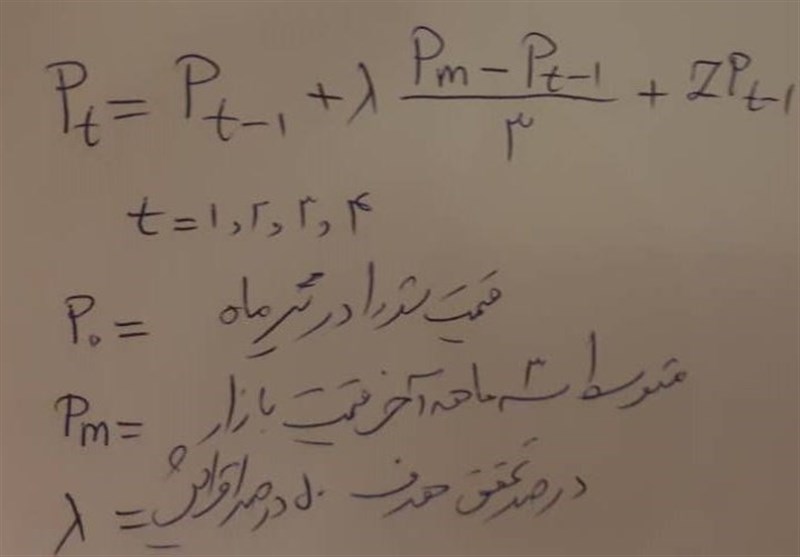 Pt = Pt-1 + λ (Pm - Pt-1) / ۳ + ZPt-1
t = ۱, ۲, ۳, ۴
P۰ = قیمت شورا در تیر ماه
Pm = متوسط ۳ ماهه آخر قیمت بازار
λ = درصد تحقق هدف ۵۰ درصد افزایش